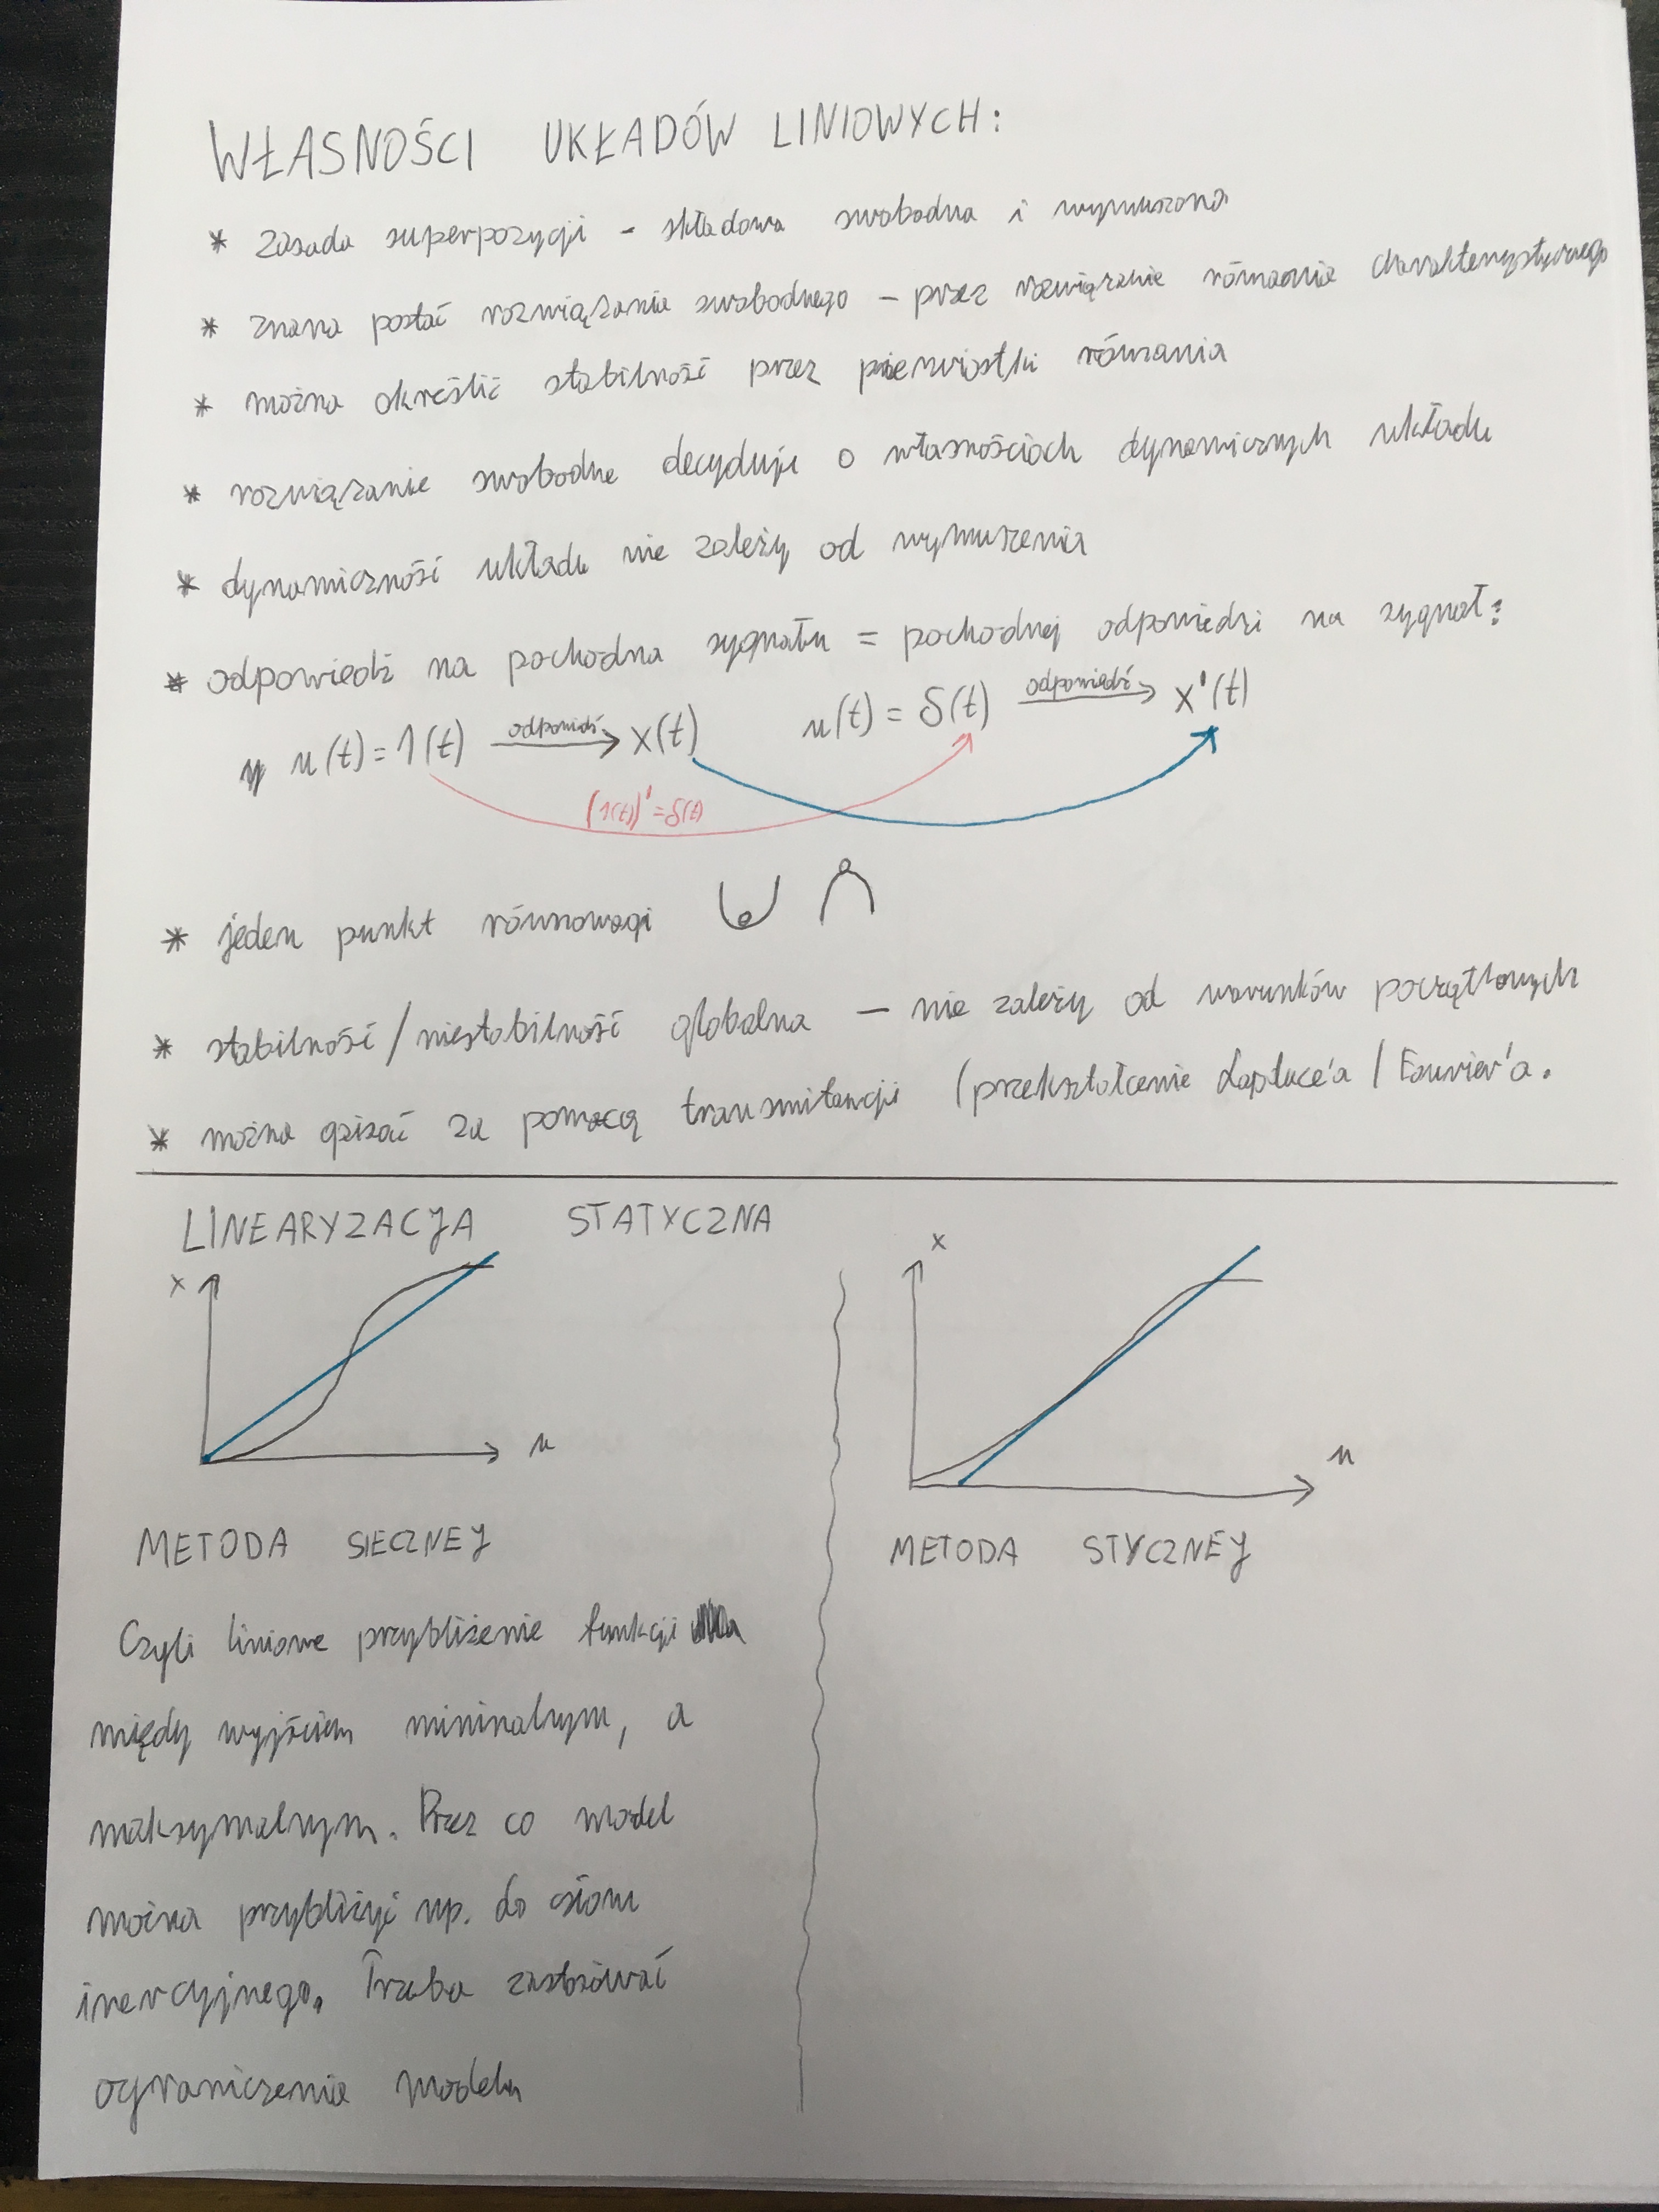 WŁASNOŚCI UKŁADÓW LINIOWYCH:
* zasada superpozycji - składowa swobodna i wymuszona
* znana postać rozwiązania swobodnego - przez rozwiązanie równania charakterystycznego
* można określić stabilność przez pierwiastki równania
* rozwiązanie swobodne decyduje o własnościach dynamicznych układu
* dynamiczność układu nie zależy od wymuszenia
* odpowiedź na pochodna sygnału = pochodnej odpowiedzi na sygnał:
u(t) = 1(t) odpowiedź x(t) u(t) = δ(t) odpowiedź x'(t)
(1(t))' = δ(t)
* jeden punkt równowagi
* stabilność/niestabilność globalna - nie zależy od warunków początkowych
* można opisać za pomocą transmitancji (przekształcenie Laplace'a / Fourier'a.
LINEARYZACJA STATYCZNA
x
u
x
u
METODA SIECZNEJ
METODA STYCZNEJ
Czyli liniowe przybliżenie funkcji
między wyjściem mininalnym, a
maksymalnym. Przez co model
można przybliżyć np. do
inercyjnego. Trzeba zastosować
ograniczenie modelu